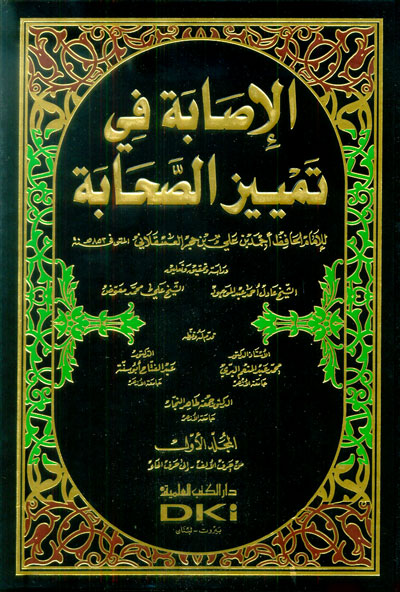 الإصابة في
تمييز الصحابة
للإمام الحافظ أحمد بن علي بن حجر العسقلاني المتوفى سنة ٨٥٢ هـ
دراسة وتحقيق وتعليق
الشيخ عادل أحمد عبد الموجود الشيخ علي محمد معوض
قدم له وقرظه
الأستاذ الدكتور
محمد عبد المنعم البري
جامعة الأزهر
الدكتور
عبد الفتاح أبو سنة
جامعة الأزهر
الدكتور جمعة طاهر النجار
جامعة الأزهر
المجلد الأول
من حرف الألف - إلى حرف
دار الكتب العلمية
DKi
بيروت - لبنان